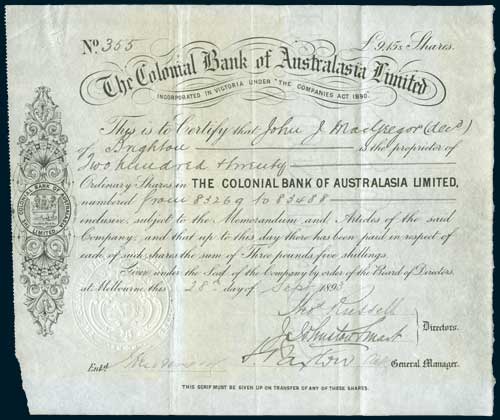 No. 355 £9.15s Shares.
The Colonial Bank of Australasia Limited
INCORPORATED IN VICTORIA UNDER "THE COMPANIES ACT 1890."
This is to Certify that John J MacGregor (decd)
of Brighton is the proprietor of
Two hundred & twenty
Ordinary Shares in THE COLONIAL BANK OF AUSTRALASIA LIMITED,
numbered from 83269 to 83488
inclusive, subject to the Memorandum and Articles of the said
Company, and that up to this day there has been paid in respect of
each of such shares the sum of Three pounds five shillings.
Given under the Seal of the Company by order of the Board of Directors,
at Melbourne, this 28th day of Sept 1893
THE COLONIAL BANK OF AUSTRALASIA LIMITED
Thos Russell
Directors.
Entd. General Manager.
THIS SCRIP MUST BE GIVEN UP ON TRANSFER OF ANY OF THESE SHARES.